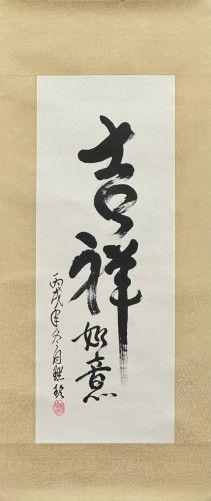 吉祥
如意
丙戌年冬月